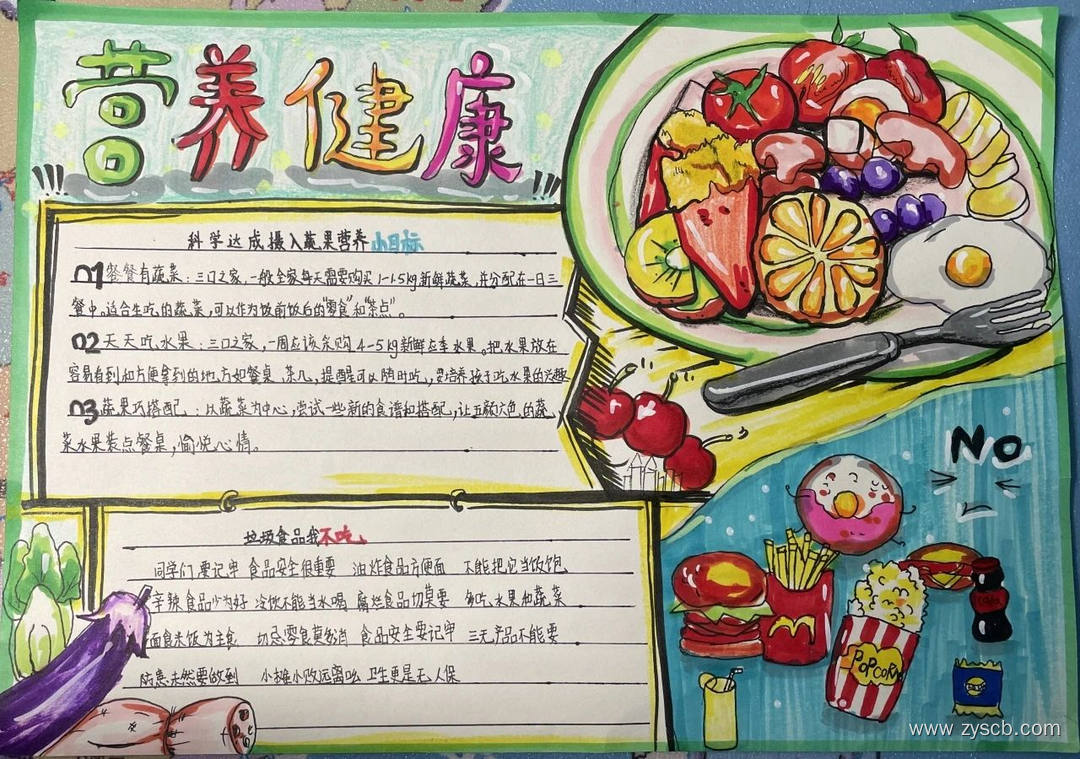 营养健康
科学达成摄入蔬果营养小目标
01餐餐有蔬菜：三口之家，一般全家每天需要购买1-1.5kg新鲜蔬菜，并分配在一日三
餐中。适合生吃的蔬菜，可以作为饭前饭后的“零食”和“茶点”。
02天天吃水果：三口之家，一周应该采购4-5kg新鲜应季水果。把水果放在
容易看到和方便拿到的地方如餐桌、茶几，提醒可以随时吃，要培养孩子吃水果的兴趣
03蔬果巧搭配：以蔬菜为中心，尝试一些新的食谱和搭配，让五颜六色的蔬
菜水果装点餐桌，愉悦心情。
No
垃圾食品我不吃
同学们要记牢 食品安全很重要 油炸食品方便面 不能把它当饭饱
辛辣食品少为好 冷饮不能当水喝 腐烂食品切莫要 多吃水果和蔬菜
面食米饭为主食 切忌零食莫 食品安全要记牢 三无产品不能要
防患未然要做到 小摊小贩远离 卫生更是无人保
POPCORN
www.zyscb.com